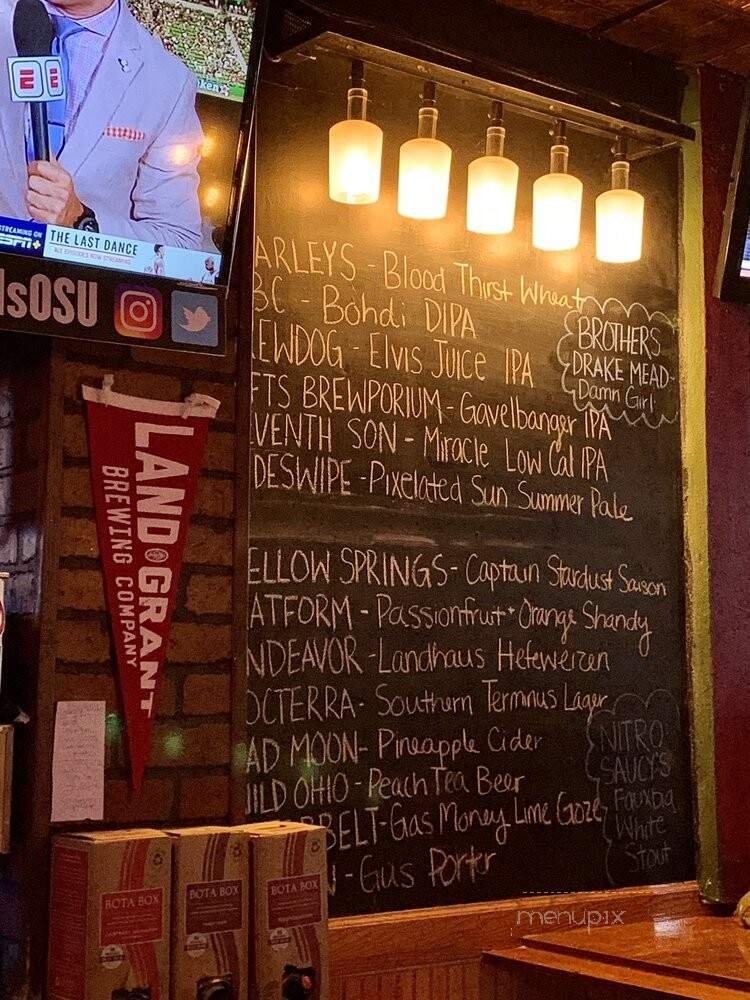 STREAMING ON
ESPN+
THE LAST DANCE
ALL EPISODES NOW STREAMING
lsOSU
ARLEYS - Blood Thirst Wheat
BC - Bohdi DIPA
EWDOG - Elvis Juice IPA
FTS BREWPORIUM - Gavelbanger IPA
VENTH SON - Miracle Low Cal IPA
DESWIPE - Pixelated Sun Summer Pale
BROTHERS
DRAKE MEAD-
Damn Girl
ELLOW SPRINGS - Captain Stardust Saison
ATFORM - Passionfruit + Orange Shandy
NDEAVOR - Landhaus Hefeweizen
OCTERRA - Southern Termnus Lager
AD MOON - Pineapple Cider
ILD OHIO - Peach Tea Beer
BELT - Gas Money Lime Goze
N - Gus Porter
NITRO
SAUCY'S
Fauxba
White
Stout
LAND GRANT
BREWING COMPANY
BOTA BOX
BOTA BOX
BOTA BOX
menupix